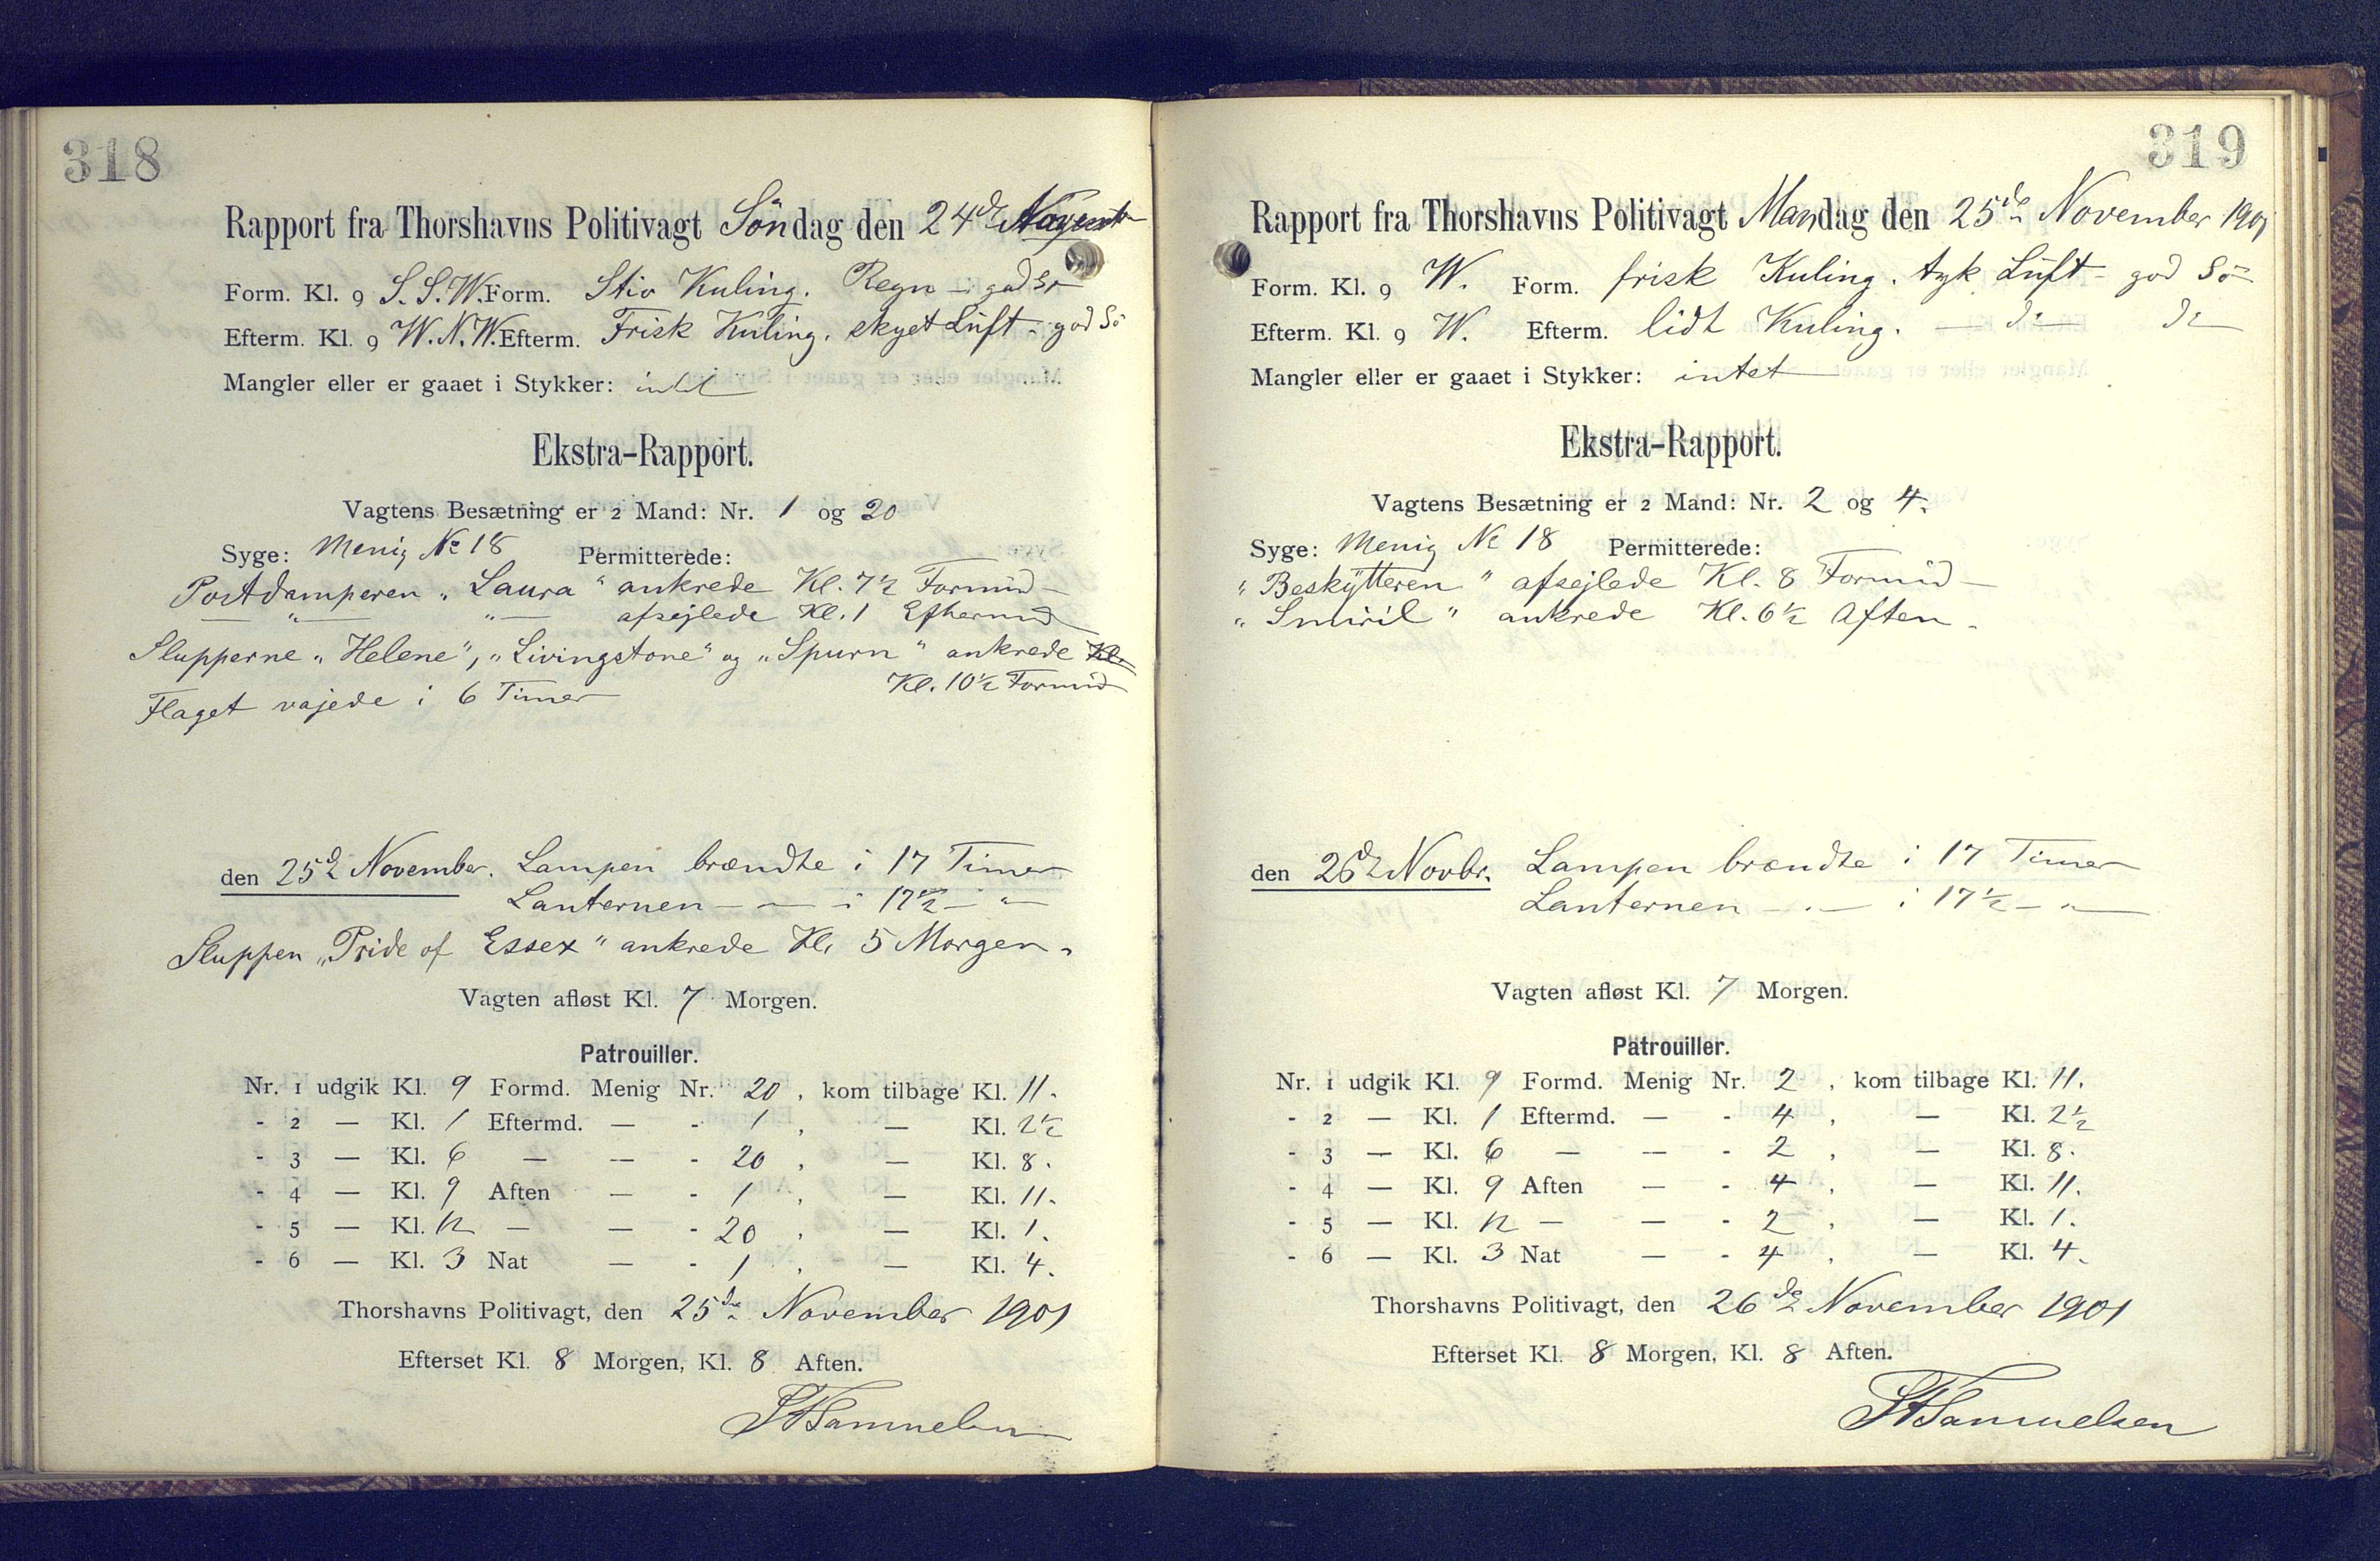 318
Rapport fra Thorshavns Politivagt Söndag den 24de Novemb
Form. Kl. 9 S.S.W. Form. Stiv Kuling. Regn - god Sö
Efterm. Kl. 9 W.N.W. Efterm. Frisk Kuling. skyet Luft - god Sö
Mangler eller er gaaet i Stykker: intet
Ekstra-Rapport.
Vagtens Besætning er 2 Mand: Nr. 1 og 20
Syge: Menig No 18 Permitterede:
Postdamperen „Laura“ ankrede Kl. 7½ Formid
— " — " — afsejlede Kl. 1 Eftermid
Slupperne „Helene“, „Livingstone“ og „Spurn“ ankrede Kl.
Kl. 10½ Formid
Flaget vajede i 6 Timer
den 25de November. Lampen brændte i 17 Timer
Lanternen — — i 17½ — " —
Sluppen „Pride of Essex“ ankrede Kl. 5 Morgen.
Vagten afløst Kl. 7 Morgen.
Patrouiller.
Nr. 1 udgik Kl. 9 Formd. Menig Nr. 20, kom tilbage Kl. 11.
- 2 — Kl. 1 Eftermd. — - 1, — Kl. 2½
- 3 — Kl. 6 — — - 20, — Kl. 8.
- 4 — Kl. 9 Aften — - 1, — Kl. 11.
- 5 — Kl. 12 — — - 20, — Kl. 1.
- 6 — Kl. 3 Nat — - 1, — Kl. 4.
Thorshavns Politivagt, den 25de November 1901
Efterset Kl. 8 Morgen, Kl. 8 Aften.
Samuelsen
319
Rapport fra Thorshavns Politivagt Mandag den 25de November 1901
Form. Kl. 9 W. Form. frisk Kuling. tyk Luft - god Sö
Efterm. Kl. 9 W. Efterm. lidt Kuling. — do — do
Mangler eller er gaaet i Stykker: intet
Ekstra-Rapport.
Vagtens Besætning er 2 Mand: Nr. 2 og 4.
Syge: Menig No 18 Permitterede:
„Beskytteren“ afsejlede Kl. 8 Formid —
„Smiril“ ankrede Kl. 6½ Aften.
den 26de Novbr. Lampen brændte i 17 Timer
Lanternen — " — i 17½ — " —
Vagten afløst Kl. 7 Morgen.
Patrouiller.
Nr. 1 udgik Kl. 9 Formd. Menig Nr. 2, kom tilbage Kl. 11.
- 2 — Kl. 1 Eftermd. — - 4, — Kl. 2½
- 3 — Kl. 6 — — - 2, — Kl. 8.
- 4 — Kl. 9 Aften — - 4, — Kl. 11.
- 5 — Kl. 12 — — - 2, — Kl. 1.
- 6 — Kl. 3 Nat — - 4, — Kl. 4.
Thorshavns Politivagt, den 26de November 1901
Efterset Kl. 8 Morgen, Kl. 8 Aften.
Samuelsen